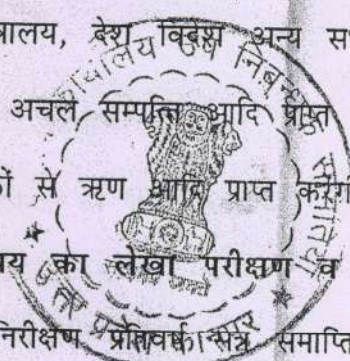 त्रालय, देश विदेश अन्य
अचल सम्पत्ति आदि प्राप्त
से ऋण आदि प्राप्त करेगी
का लेखा परीक्षण व
निरीक्षण प्रतिवर्ष सत्र समाप्ति
कार्यालय उप निबन्धक
उत्तर प्रदेश सरकार